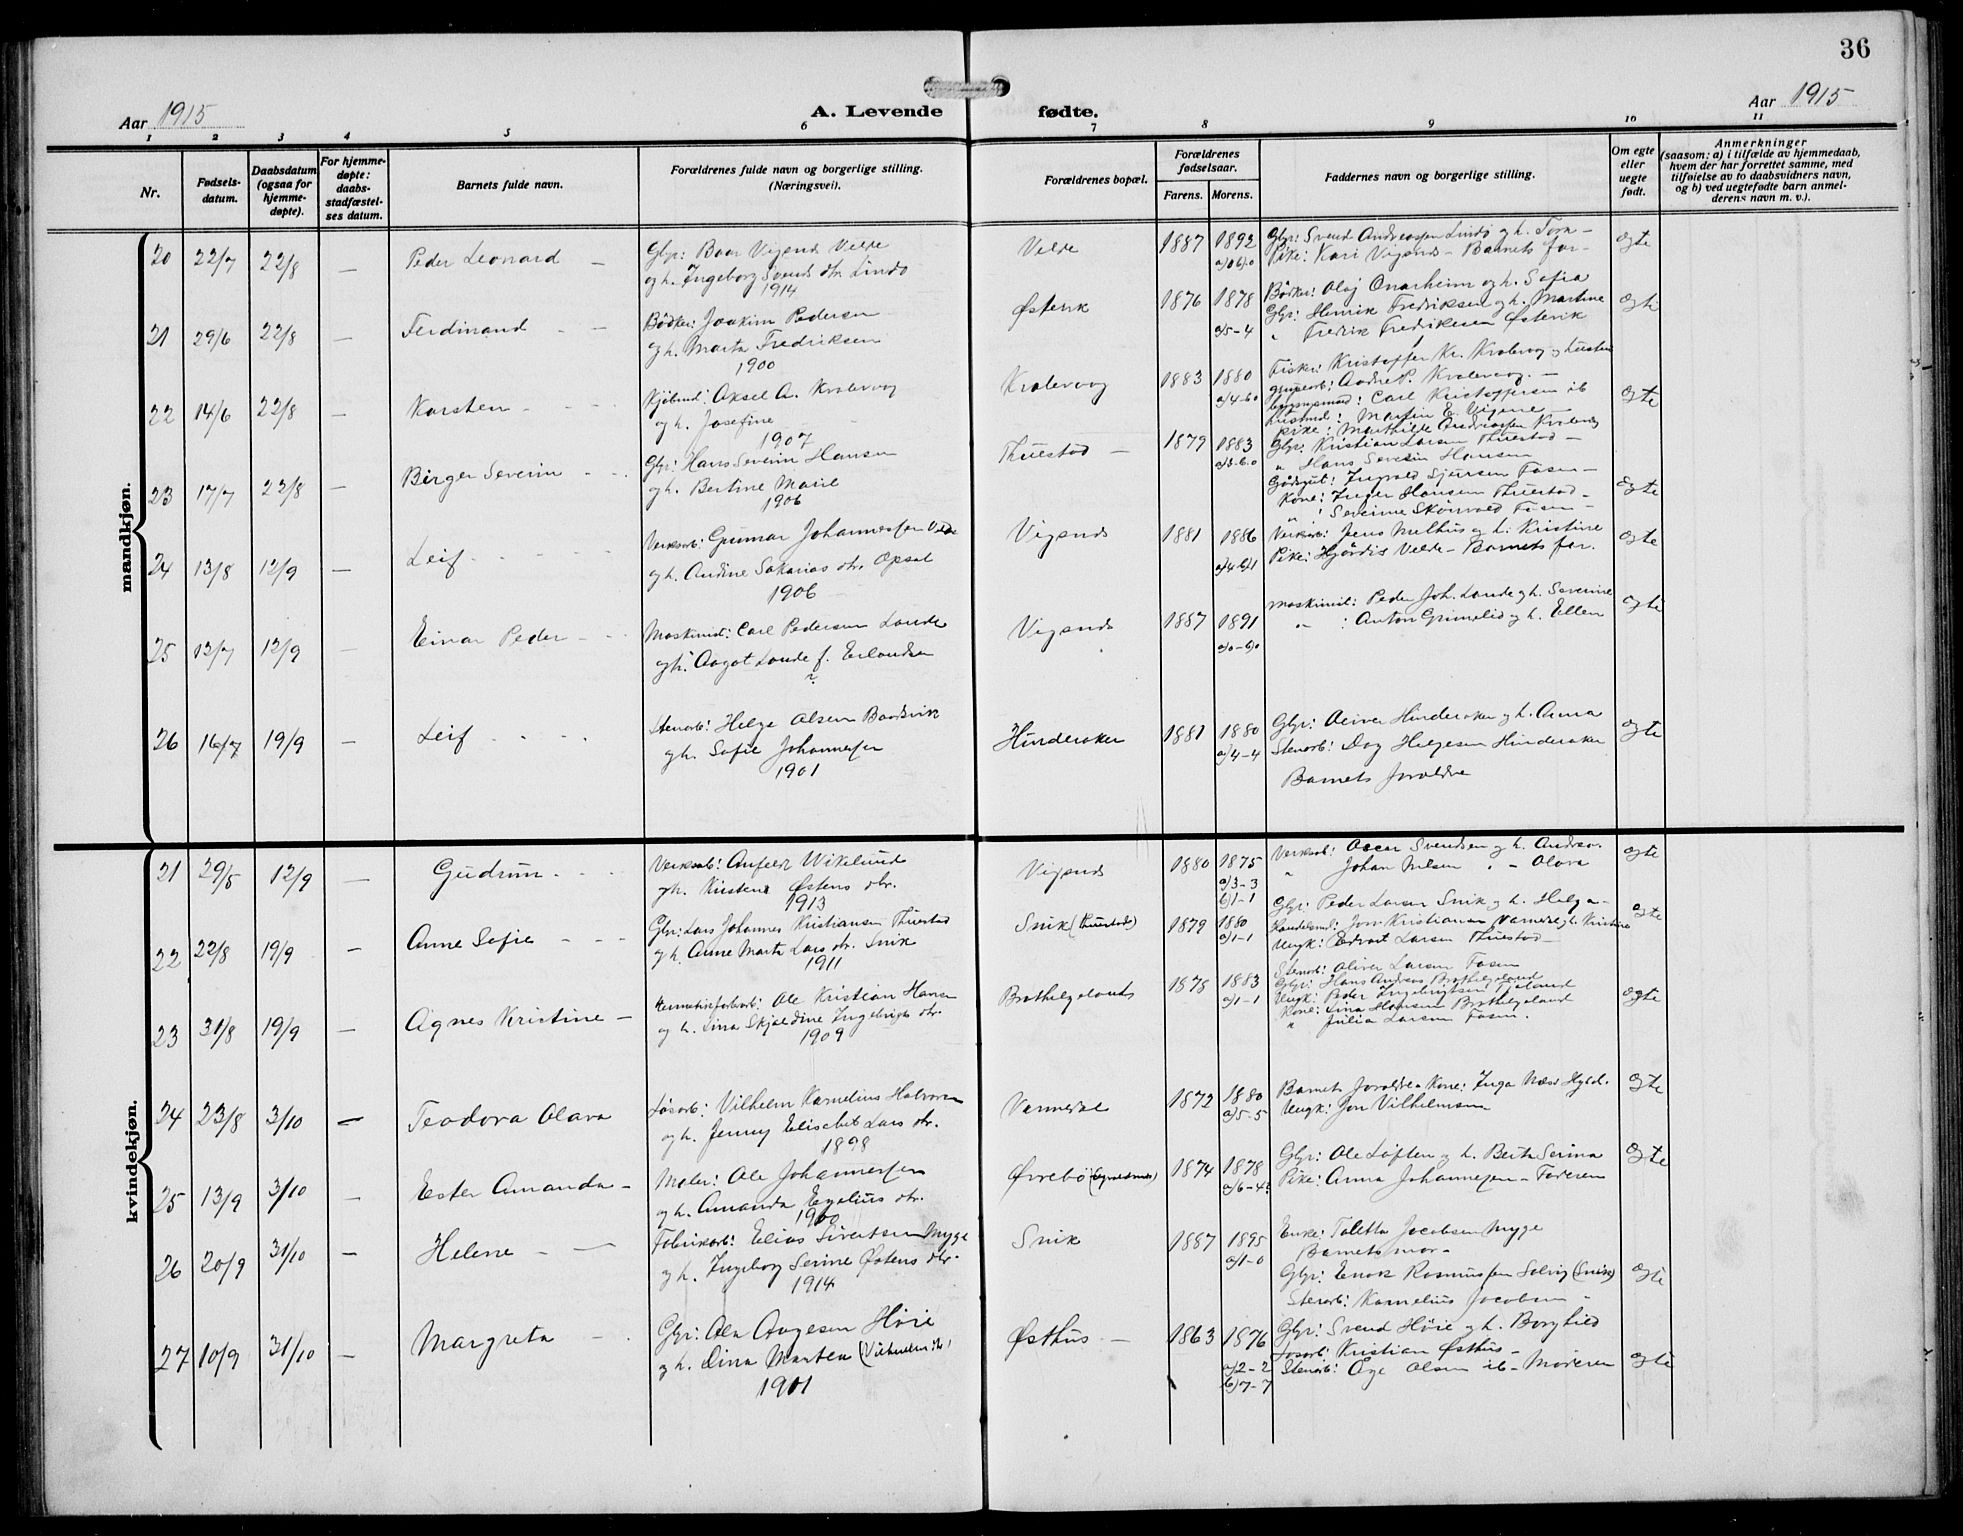 36
Aar 1915
A. Levende fødte.
Aar 1915
1 2 3 4 5 6 7 8 9 10 11
Nr.
Fødsels-
datum.
Daabsdatum
(ogsaa for
hjemme-
døpte).
For hjemme-
døpte:
daabs-
stadfæstel-
ses datum.
Barnets fulde navn.
Forældrenes fulde navn og borgerlige stilling.
(Næringsvei).
Forældrenes bopæl.
Forældrenes
fødselsaar.
Farens. Morens.
Faddernes navn og borgerlige stilling.
Om egte
eller
uegte
født.
Anmerkninger
(saasom: a) i tilfælde av hjemmedaab,
hvem der har forrettet samme, med
tilføielse av to daabsvidners navn,
og b) ved uegtefødte barn anmel-
derens navn m. v.).
mandkjøn.
20 22/7 22/8 — Peder Leonard —
Gbr: Baar Vigends Velde
og h. Ingeborg Svends dtr. Lindø
1914
Velde 1887 1892
Gbr: Svend Andreassen Lindø og h. Tora —
Pike: Kari Vigends — Barnets far —
egte
21 29/6 22/8 — Ferdinand — —
Bødker: Joakim Pedersen
og h. Marta Fredriksen
1900
Østevik 1876 1878
a)5-4
Bødker: Olaf Onarheim og h. Sofia
Gbr: Henrik Fredriksen og h. Martine
" Fredrik Fredriksen Østevik
egte
22 14/6 22/8 — Karsten - -
Kjøbmd: Aksel A. Kralevaag
og h. Josefine
1907
Kralevaag 1883 1880
a)4-6)0
Fisker: Kristoffer Kr. Kralevog og hustru
P. Kralevog. —
Carl Kristoffersen ib
Martin E. Vigene —
Pike: Mathilde Andreassen Kralevog
egte
23 17/7 22/8 — Birger Severin - -
Gbr: Hans Severin Hansen
og h. Bertine Marie
1906
Thuestad — 1879 1883
Gbr: Kristian Larsen Thuestad —
" Hans Severin Hansen
Gårdgut: Ingvald Sjursen Fosen —
Kone: Inger Hansen Thuestad —
" : Severine Skönvold Fosen —
egte
24 13/8 12/9 — Leif - - - -
Verksarb: Gunnar Johannessen Velde
og h. Andine Sakarias dtr. Opsal
1906
Vigsnes 1881 1886
Verksarb: Jens Melhus og h. Kristine
Pike: Hjördis Velde — Barnets far.
egte
25 12/7 12/9 — Einar Peder - -
Maskinist: Carl Pedersen Lande
og h. Aagot Lande f. Erlandsen
?
Vigsnes 1887 1891
Maskinist: Peder Joh. Lande og h. Severine
" : Anton Grimelid og h. Ellen
egte
26 16/7 19/9 — Leif - - - -
Stenarb: Helge Olsen Baadsvik
og h. Sofie Johannessen
1901
Hinderaker 1881 1880
a)4-4
Gbr: Aeiver Hinderaker og h. Anna
Stenarb: Dag Helgesen Hinderaker
Barnets foreldre
egte
kvindekjøn.
21 29/5 12/9 — Gudrun - - -
Verksarb: Anfeldt Wikelund
og h. Kirstena Østens dtr.
1913
Vigsnes 1880 1875
a)3-3
b)1-1
Verksarb: Oscar Svendsen og h. Andrea.
" Johan Nilsen " — Olava
egte
22 22/8 19/9 — Anne Sofie - - -
Gbr: Lars Johannes Kristiansen Thuestad
og h. Anne Marta Lars dtr. Snik
1911
Snik (Thuestad) 1879 1880
a)1-1
Gbr: Peder Larsen Snik og h. Helga —
Handelsmd: Jon Kristiansen Varnedal og h. Kristine
Ungk: Edvart Larsen Thuestad —
egte
23 31/8 19/9 — Agnes Kristine —
Hermetikfabarb: Ole Kristian Hansen
og h. Lina Skjaldine Ingebrigts dtr.
1909
Brathelgeland 1878 1883
a)1-1
Stenarb: Oliver Larsen Fosen
Gbr: Hans Andreas Brathelgeland
Ungk: Peder Ingebrigtsen Tjøland
Kone: Lina Hansen Brathelgeland
" Julia Larsen Fosen.
egte
24 23/8 3/10 — Teodora Olava
Løsarb: Vilhelm Kornelius Halvorsen
og h. Jenny Elisabet Lars dtr.
1898
Varnedal 1872 1880
a)5-5
Barnets foreldre — Kone: Inga Næss Hyld.
Ungk: Jon Vilhelmsen
egte
25 13/9 3/10 — Ester Amanda —
Maler: Ole Johannessen
og h. Amanda Egelius dtr.
1900
Øvrebö 1874 1878
a)6-4
Gbr: Ole Løften og h. Berta Serina
Pike: Anna Johannessen — Faderen
egte
26 20/9 31/10 — Helene — —
Fabrikarb: Elias Sivertsen Myge
og h. Ingeborg Serine Østens dtr.
1914
Snik 1887 1895
a)1-0
Enke: Taletta Jacobsen Myge
Barnets mor —
Gbr: Enok Rasmussen Solvig (Snik)
Stenarb: Kornelius Jacobsen
egte
27 10/9 31/10 — Margreta —
Gbr: Ola Aagesen Høie
og h. Dina Martea
1901
Østhus — 1863 1876
a)2-2
b)7-7
Gbr: Svend Høie og h. Borghild
Løsarb: Kristian Østhus —
Stenarb: Åge Olsen ib — Moderen
egte